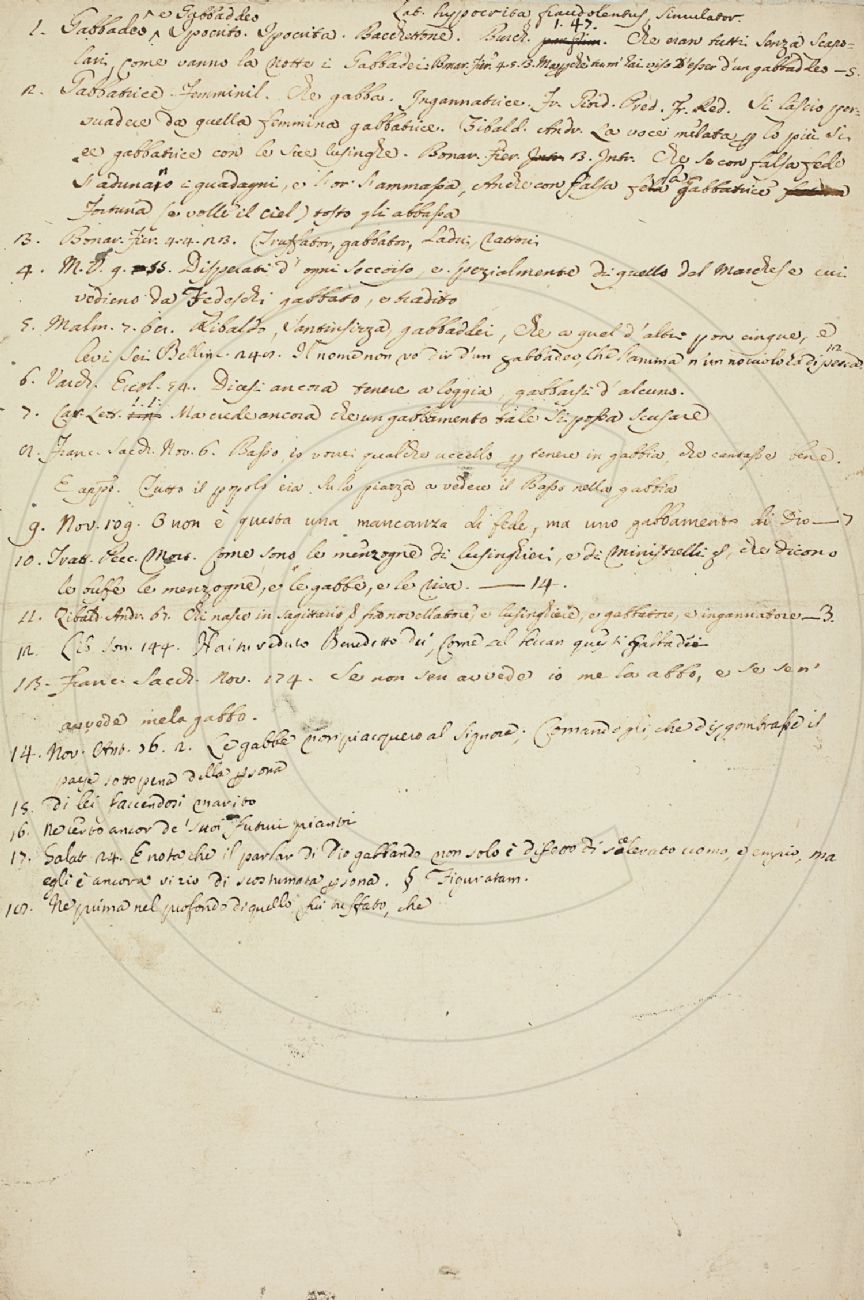 ^ e Gabbaddeo Lat. hyppocrita fraudolentus, simulator.
1. Gabbadeo ^ Ipocrito. Ipocrita. Bacchettone. Burch. 1. 47. Che eran tutti senza scapo-
lari, Come vanno la notte i Gabbadei. Bonar. Fier. 4. 5. 13. hai viso d'esser d'un gabbaddeo — 5.
2. Gabbatrice. Femminil. Che gabba. Ingannatrice. Fr. Giord. Pred. Fr. Red. Si lasciò per-
suadere da quella femmina gabbatrice. Libald. Andr. La voce melata p lo più si
è gabbatrice con le sue lusinghe. Bonar. Fier. Intr. 3. Intr. Che se con falsa fede
s'adunaro i guadagni, e l'or s'ammassa, Anche con falsa fede gabbatrice
Fortuna (e volle il ciel) tosto gli abbassa
3. Bonar. Fier. 4. 4. 23. Truffator, gabbator, Ladri, Rattori
4. M. V. 9. Disperati d'ogni soccorso, e spezialmente di quello del Marchese cui
vedieno da Tedeschi gabbato, e tradito
5. Malm. 7. 61. Ribaldo, Santinfizza, gabbaddei, Che a quel d'altri pon cinque, e
levi sei. Bellin. 241. Il nome non vo dir d'un gabbadeo, Che l'anima n'un nocciolo
6. Varch. Ercol. 54. Dicesi ancora tenere a loggia, gabbarsi d'alcuno.
7. Car. Lett. 1. 1. Ma crede ancora che un gabbamento tale si possa scusare
8. Franc. Sacch. Nov. 6. Basso, io vorrei qualche uccello p tenere in gabbia, che cantasse bene.
E appr. Tutto il popolo era su la piazza a vedere il Basso nella gabbia
9. Nov. 109. O non è questa una mancanza di fede, ma uno gabbamento di Dio — 7
10. Tratt. Pecc. Mort. Come sono le menzogne di lusinghieri, e di ministrelli, che dicono
le buffe le menzogne, e le gabbe, e le risa. — 14.
11. Libald. Andr. 61. Chi nasce in sagittario novellatore, e lusinghiere, e gabbatore, e ingannatore — 3.
12. Lib. Son. 144. Hai tu veduto Benedetto Dei, Come al toccan questi Gabbadei
13. Franc. Sacch. Nov. 174. Se non sen avvede io me la abbo, e se sen'
avvede me la gabbo.
14. Nov. Ant. 36. 2. Le gabbe non piacquero al Signore; Comandogli che disgombrasse il
paese sotto pena della psona
15. Di lei facendosi marito
16. Ne certo ancor de' suoi futuri pianti
17. Galat. 24. E nota che il parlar di Dio gabbando non solo è difetto di scelerato uomo, e empio, ma
egli è ancora vizio di scostumata psona. § Figuratam.
18. Ne prima nel profondo di quello fui tuffato, che